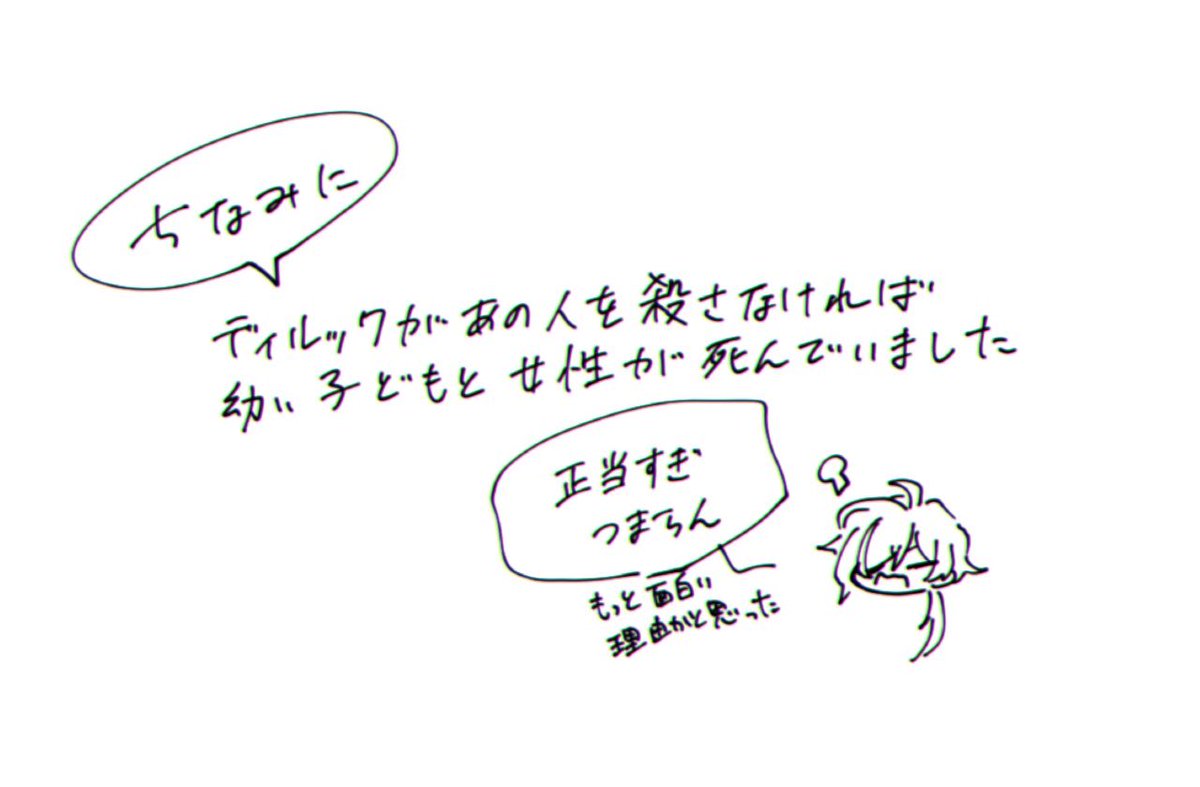 ちなみに
ディルックがあの人を殺さなければ
幼い子どもと女性が死んでいました
正当すぎ
つまらん
もっと面白い
理由かと思った